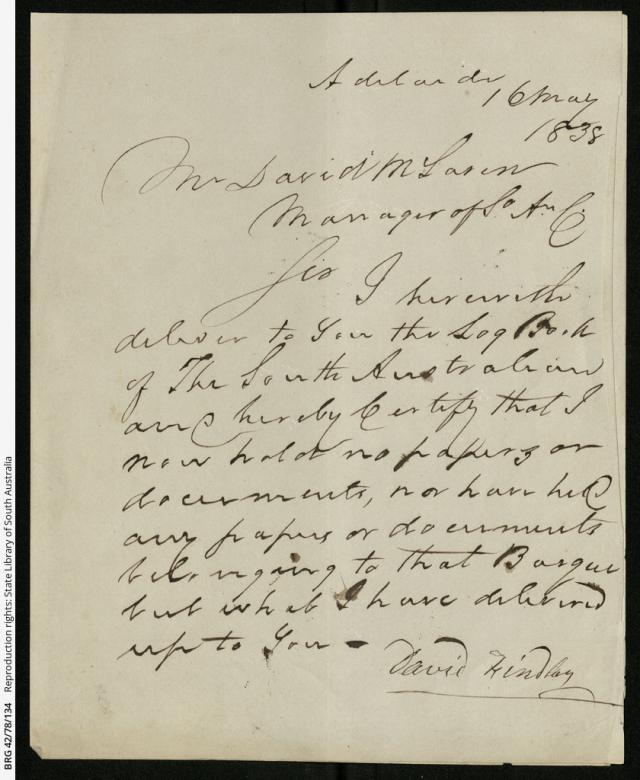 Adelaide
16 May
1838
Mr David McLaren
Manager of So. Au. C.
Sir I herewith
deliver to You the Log Book
of The South Australian
and hereby Certify that I
now hold no papers or
documents, nor have held
any papers or documents
belonging to that Barque
but what I have delivered
up to You -
David Findlay
BRG 42/78/134 Reproduction rights: State Library of South Australia